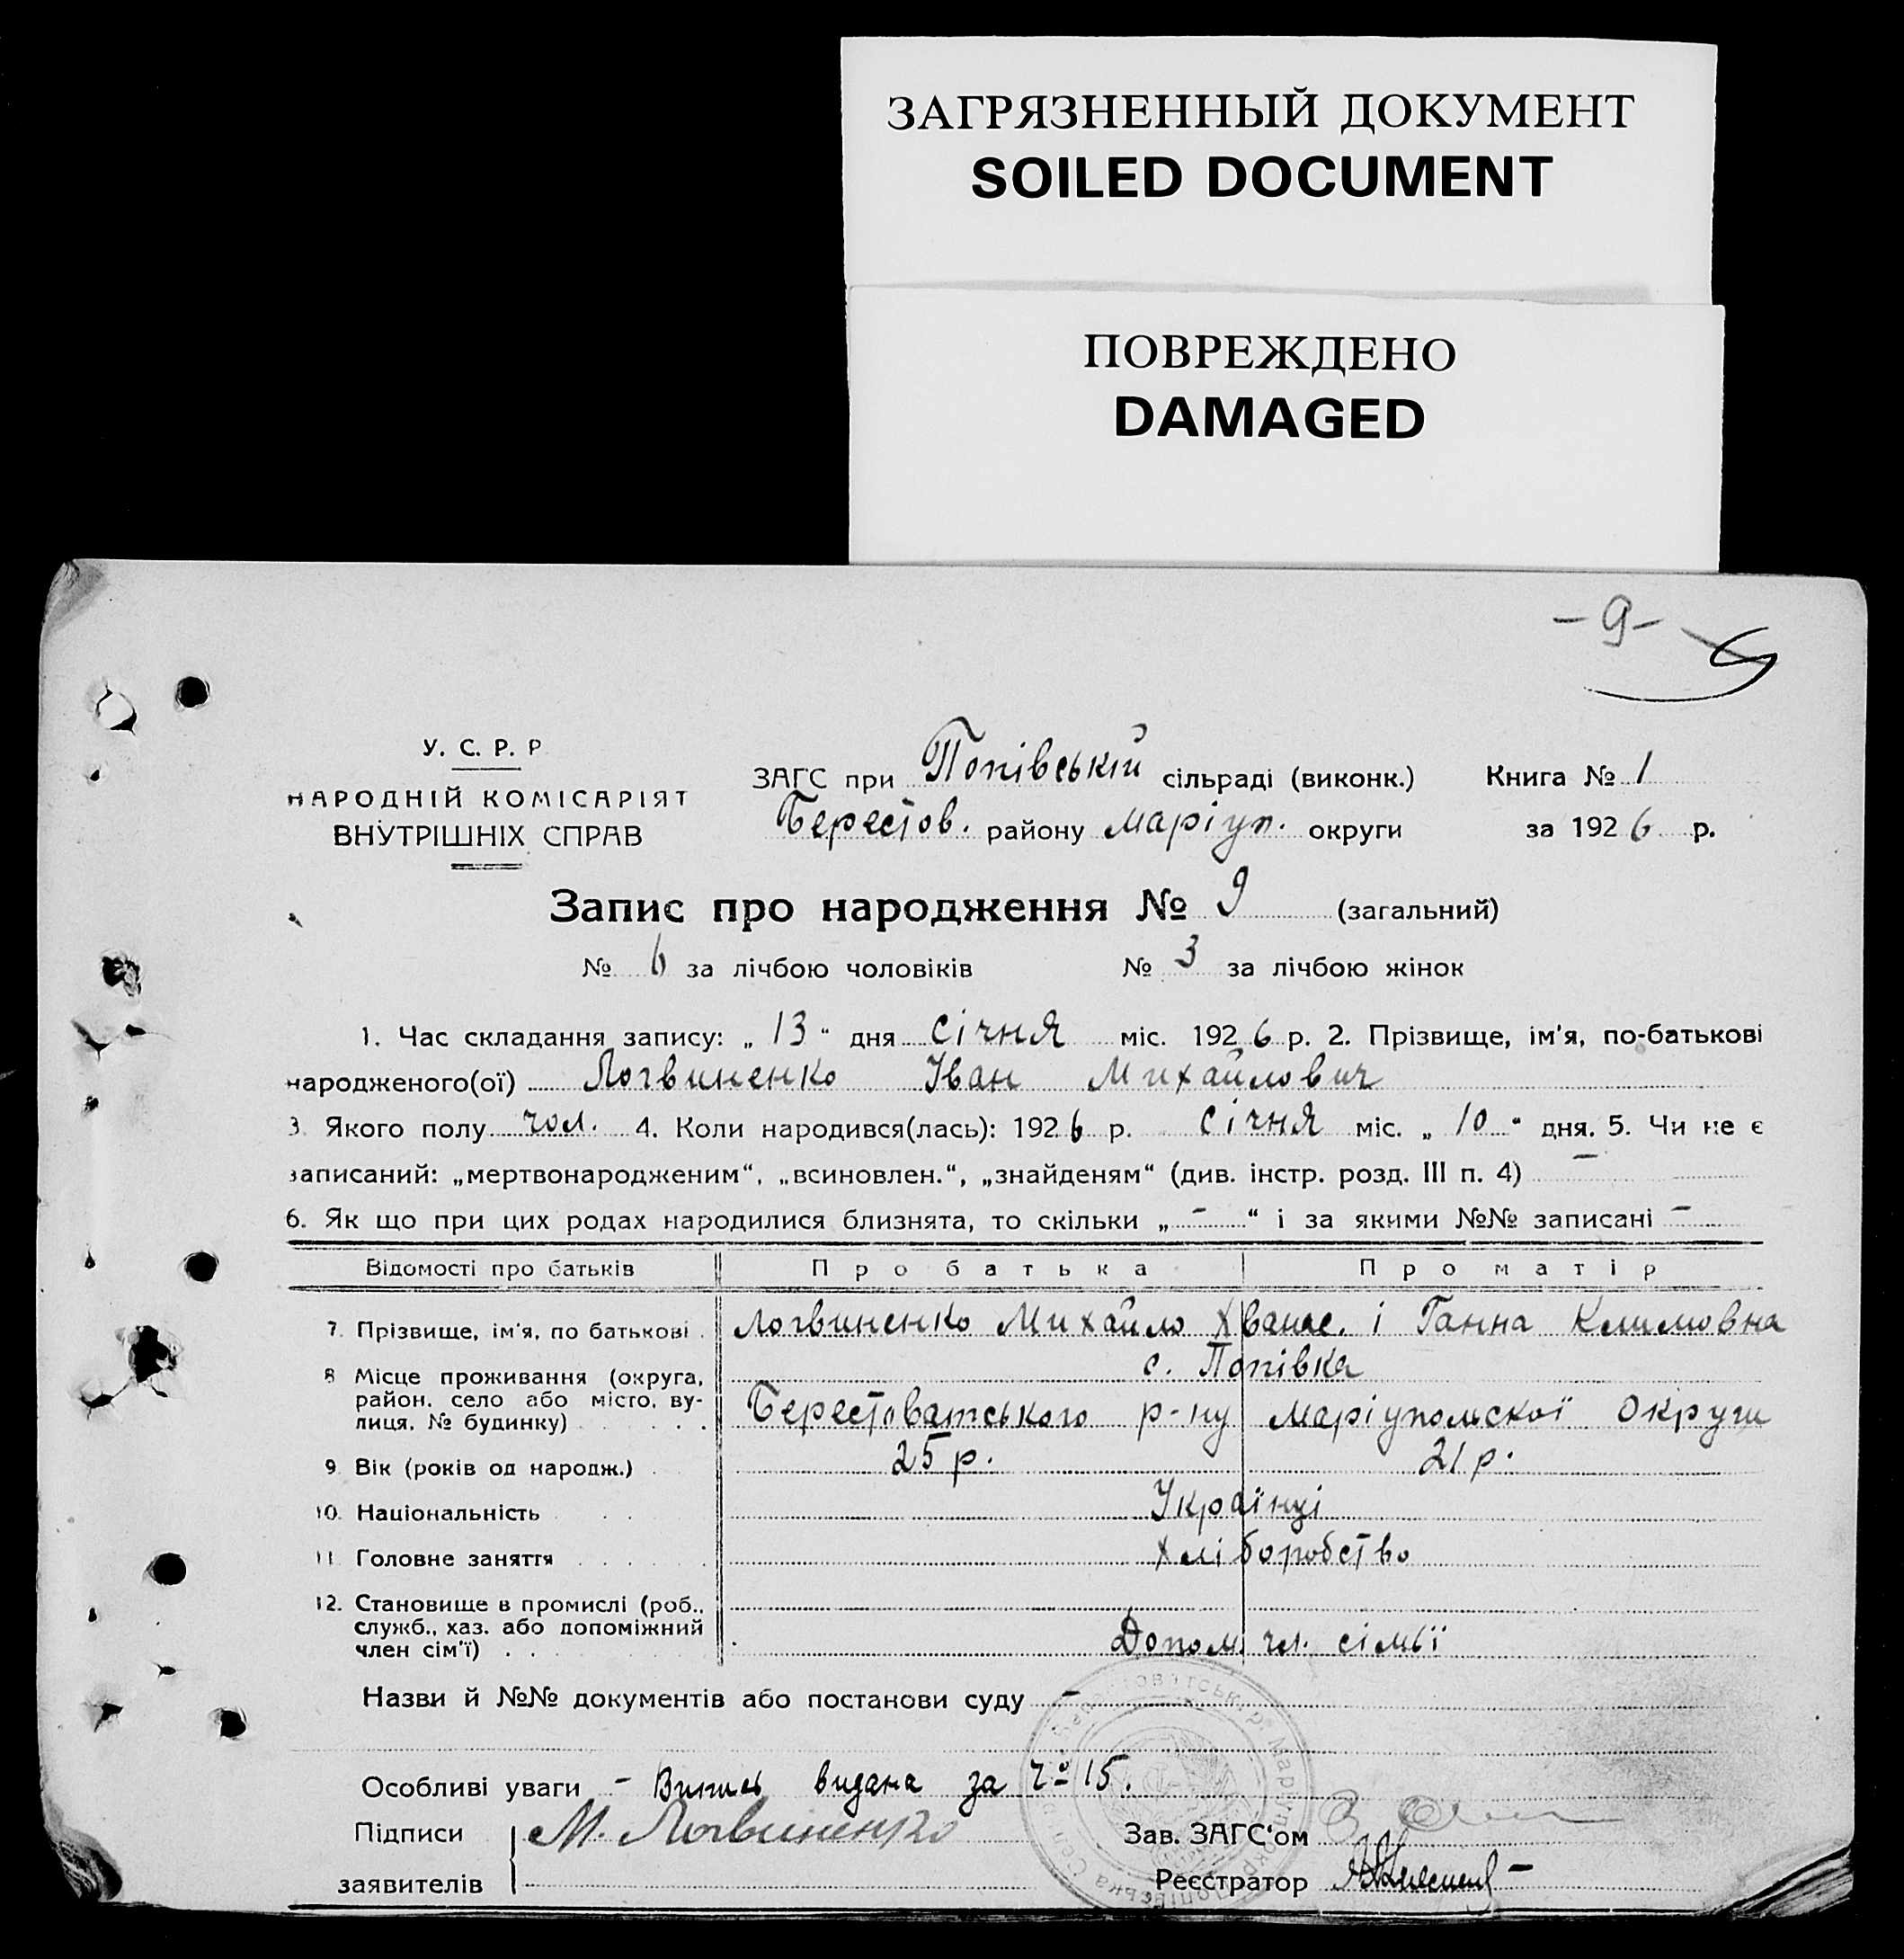 ЗАГРЯЗНЕННЫЙ ДОКУМЕНТ
SOILED DOCUMENT
ПОВРЕЖДЕНО
DAMAGED
- 9 -
У. С. Р. Р
НАРОДНІЙ КОМІСАРІЯТ
ВНУТРІШНІХ СПРАВ
ЗАГС при Попівській сільраді (виконк.) Книга № 1
Берестов. району Маріуп. округи за 1926 р.
Запис про народження № 9 (загальний)
№ 6 за лічбою чоловіків № 3 за лічбою жінок
1. Час складання запису: „ 13 “ дня січня міс. 1926 р. 2. Прізвище, ім'я, по-батькові
народженого(ої) Логвиненко Іван Михайлович
3. Якого полу чол. 4. Коли народився(лась): 1926 р. січня міс. „ 10 “ дня. 5. Чи не є
записаний: „мертвонародженим“, „всиновлен.“, „знайденям“ (див. інстр. розд. III п. 4) -
6. Як що при цих родах народилися близнята, то скільки „ - “ і за якими №№ записані -
Відомості про батьків Про батька Про матір
7. Прізвище, ім'я, по батькові Логвиненко Михайло і Ганна Климовна
8 Місце проживання (округа, район, село або місто, вулиця, № будинку) с. Попівка
Берестоватського р-ну Маріупольскої Округи
9. Вік (років од народж.) 25 р. 21 р.
10. Національність Українці
11 Головне заняття Хліборобство
12. Становище в промислі (роб., служб., хаз. або допоміжний член сім'ї) Допом. чл. сімьї
Назви й №№ документів або постанови суду -
Особливі уваги - Випись видана за 15.
Підписи М. Логвиненко Зав. ЗАГС'ом
заявителів Реєстратор